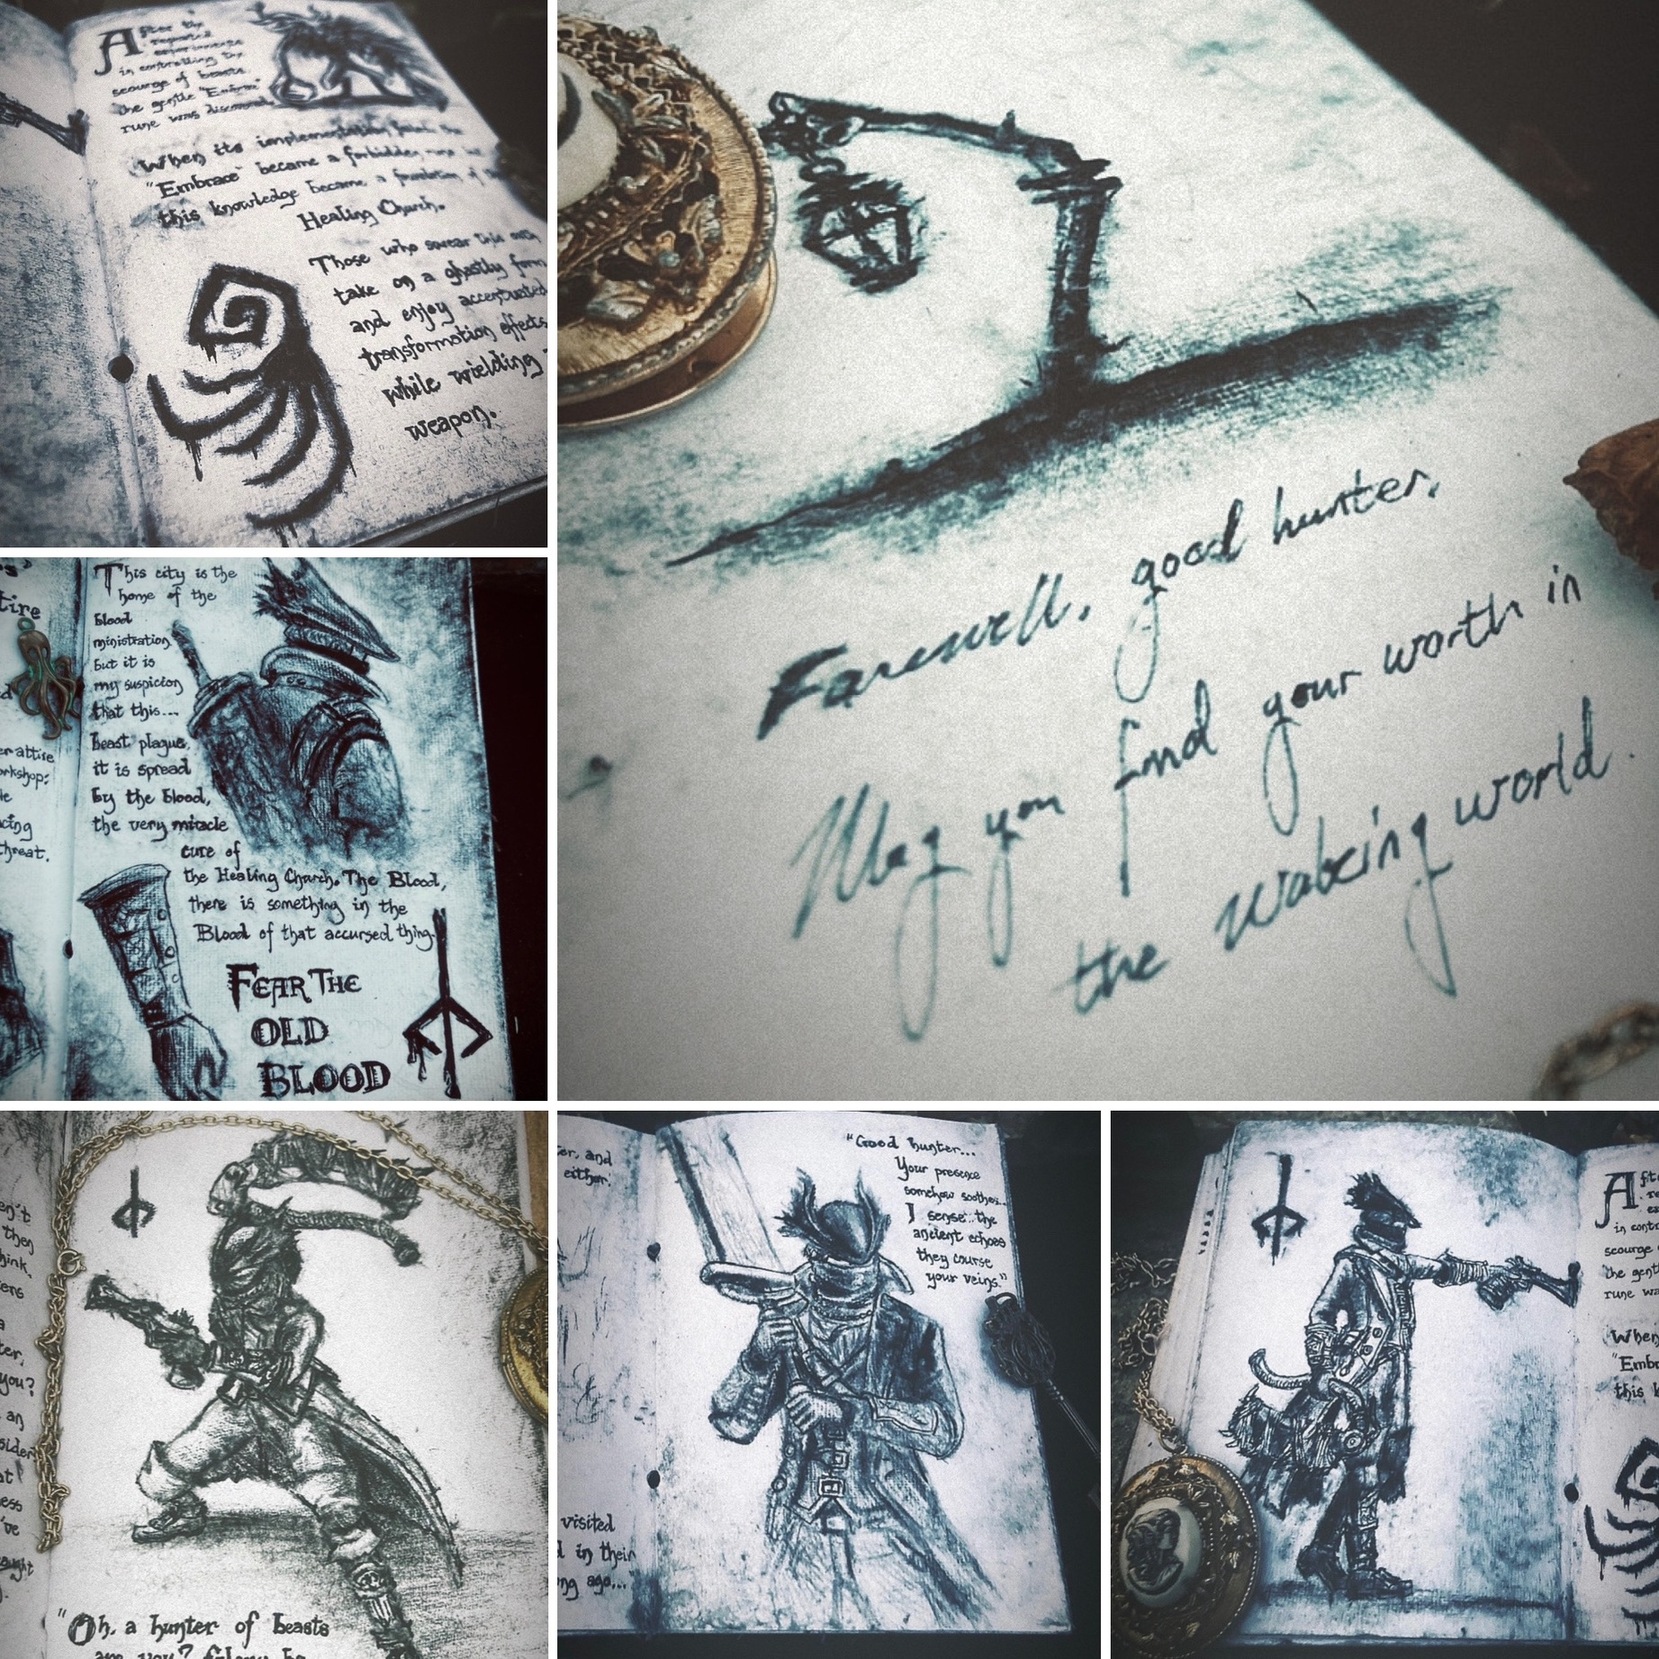 After the
repeated
experiments
in controlling the
scourge of beasts,
the gentle "Embrace"
rune was discovered.
When its implementation failed, the
"Embrace" became a forbidden rune but
this knowledge became a foundation of
Healing Church.
Those who swear this oath
take on a ghastly form
and enjoy accentuated
transformation effects
while wielding
weapon.
Farewell, good hunter.
May you find your worth in
the waking world.
tire
er attire
orkshop;
cing
threat.
This city is the
home of the
blood
ministration
but it is
my suspicion
that this...
beast plague,
it is spread
by the blood,
the very miracle
cure of
the Healing Church. The Blood,
there is something in the
Blood of that accursed thing.
FEAR THE
OLD
BLOOD
then
hink,
you?
an
sider
ess
've
"Oh, a hunter of beasts
are you?
er, and
either.
visited
in their
ng ago..."
"Good hunter...
Your presence
somehow soothes..
I sense the
ancient echoes
they course
your veins."
After
in contr
scourge
the gent
rune wa
When
"Embr
this k